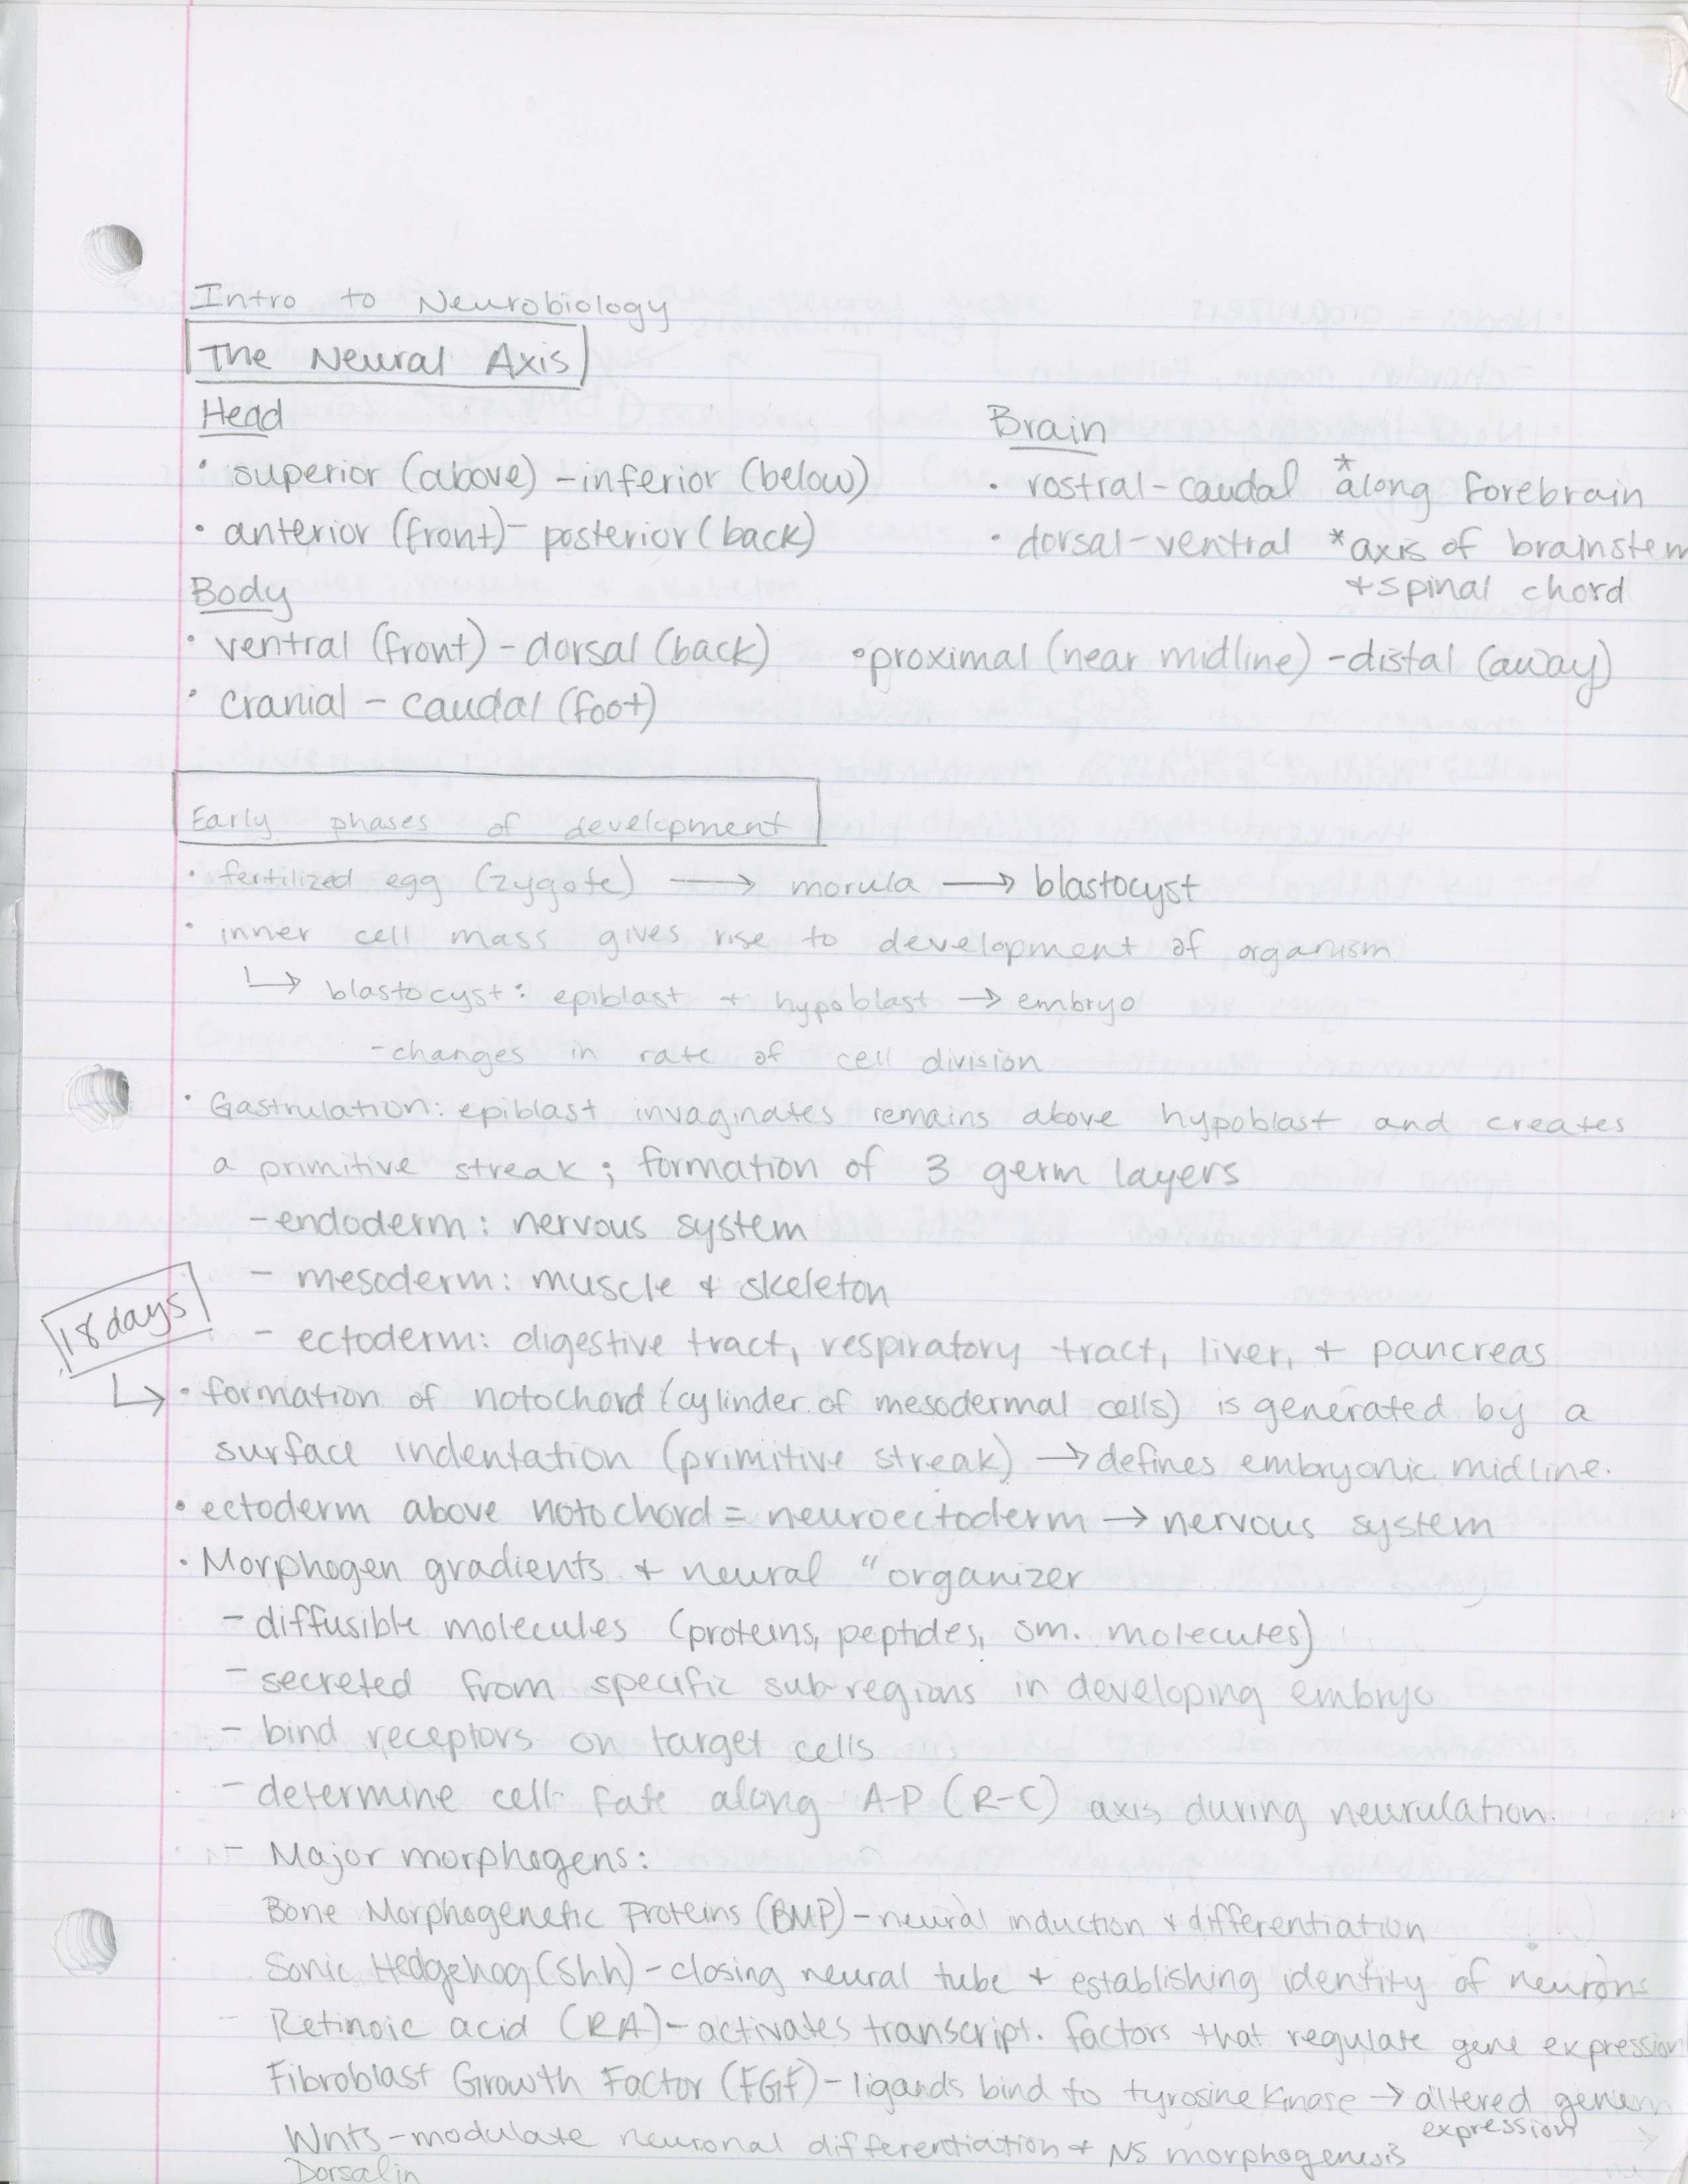 Intro to Neurobiology
The Neural Axis
Head
• superior (above) - inferior (below)
• anterior (front) - posterior (back)
Brain
• rostral - caudal *along forebrain
• dorsal - ventral *axis of brainstem
+ spinal chord
Body
• ventral (front) - dorsal (back) • proximal (near midline) - distal (away)
• cranial - caudal (foot)
Early phases of development
• fertilized egg (zygote) → morula → blastocyst
• inner cell mass gives rise to development of organism
↳ blastocyst: epiblast + hypoblast → embryo
- changes in rate of cell division
• Gastrulation: epiblast invaginates remains above hypoblast and creates
a primitive streak; formation of 3 germ layers
- endoderm: nervous system
- mesoderm: muscle + skeleton
18 days
- ectoderm: digestive tract, respiratory tract, liver, + pancreas
↳ • formation of notochord (cylinder of mesodermal cells) is generated by a
surface indentation (primitive streak) → defines embryonic midline.
• ectoderm above notochord = neuroectoderm → nervous system
• Morphogen gradients + neural "organizer
- diffusible molecules (proteins, peptides, sm. molecules)
- secreted from specific sub-regions in developing embryo
- bind receptors on target cells
- determine cell fate along A-P (R-C) axis during neurulation.
- Major morphogens:
Bone Morphogenetic Proteins (BMP) - neural induction + differentiation
Sonic Hedgehog (Shh) - closing neural tube + establishing identity of neurons
Retinoic acid (RA) - activates transcript. factors that regulate gene expression
Fibroblast Growth Factor (FGF) - ligands bind to tyrosine kinase → altered
expression
Wnts - modulate neuronal differentiation + NS morphogenesis
Dorsalin